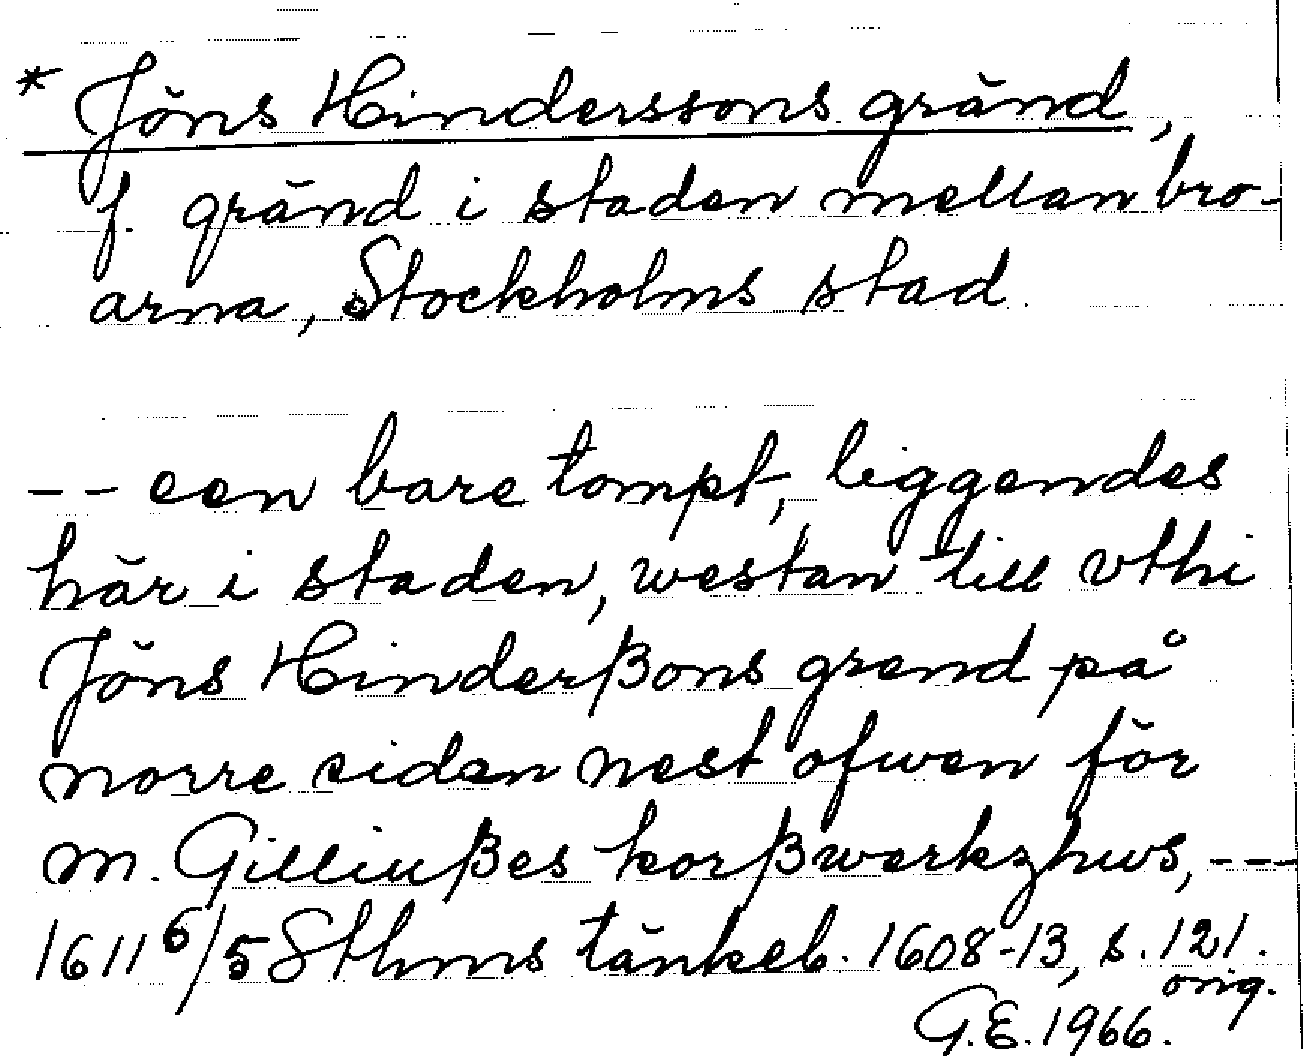 * Jöns Hinderssons gränd,
f. gränd i staden mellan bro-
arna, Stockholms stad.
-- een bare tompt, liggendes
här i staden, westan till vthi
Jöns Hinderßons grend på
norre sidan nest ofwen för
M. Gilliußes korßwerkzhws, ---
1611 6/5 Sthms tänkeb. 1608-13, s. 121.
orig.
G.E. 1966.